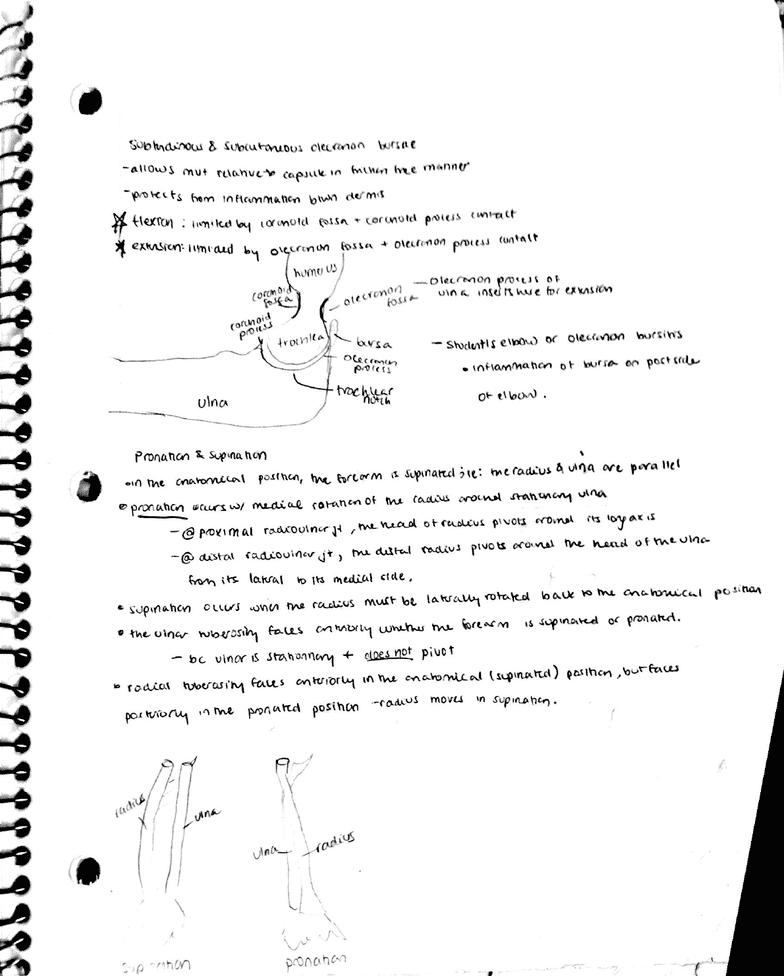 Subtendinous & subcutaneous olecranon bursae
-allows mvt relative to capsule in friction free manner
-protects from inflammation btwn dermis
☆ flexion : limited by coronoid fossa + coronoid process contact
★ extension: limited by olecranon fossa + olecranon process contact
humerus
coronoid fossa
olecranon fossa
- olecranon process of ulna inserts here for extension
coronoid process
trochlea
bursa
olecranon process
trochlear notch
ulna
- students elbow or olecranon bursitis
• inflammation of bursa on post side
of elbow.
Pronation & supination
•in the anatomical position, the forearm is supinated ; ie: the radius & ulna are parallel
• pronation occurs w/ medial rotation of the radius around stationary ulna
-@ proximal radioulnar jt , the head of radius pivots around its long axis
-@ distal radioulnar jt , the distal radius pivots around the head of the ulna
from its lateral to its medial side.
• supination occurs when the radius must be laterally rotated back to the anatomical position
• the ulnar tuberosity faces anteriorly whether the forearm is supinated or pronated.
- bc ulnar is stationary + does not pivot
• radial tuberosity faces anteriorly in the anatomical (supinated) position, but faces
posteriorly in the pronated position -radius moves in supination.
radius
ulna
ulna
radius
supination
pronation